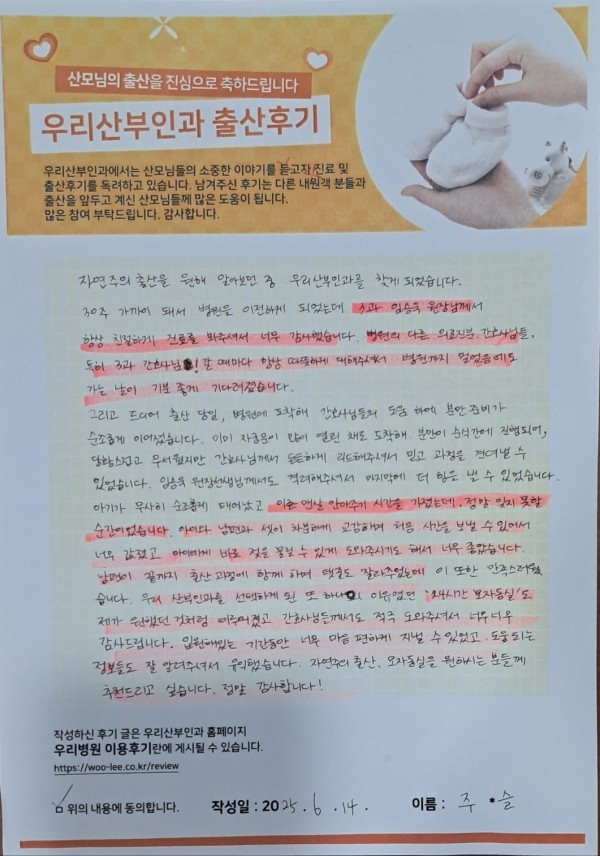 산모님의 출산을 진심으로 축하드립니다
우리산부인과 출산후기
우리산부인과에서는 산모님들의 소중한 이야기를 듣고자 진료 및
출산후기를 독려하고 있습니다. 남겨주신 후기는 다른 내원객 분들과
출산을 앞두고 계신 산모님들께 많은 도움이 됩니다.
많은 참여 부탁드립니다. 감사합니다.
자연주의 출산을 원해 알아보던 중 우리산부인과를 찾게 되었습니다.
30주 가까이 돼서 병원을 이전하게 되었는데 3과 임승욱 원장님께서
항상 친절하게 진료를 봐주셔서 너무 감사했습니다. 병원의 다른 의료진분, 간호사님들,
특히 3과 간호사님! 갈 때마다 항상 따뜻하게 대해주셔서 병원까지 멀었음에도
가는 날이 기분 좋게 기다려졌습니다.
그리고 드디어 출산 당일, 병원에 도착해 간호사님들의 도움 하에 분만 준비가
순조롭게 이어졌습니다. 이미 자궁문이 많이 열린 채로 도착해 분만이 순식간에 진행되어,
당황스럽고 무서웠지만 간호사님께서 든든하게 리드해주셔서 믿고 과정을 견뎌낼 수
있었습니다. 임승욱 원장선생님께서도 격려해주셔서 마지막에 더 힘을 낼 수 있었습니다.
아기가 무사히 순조롭게 태어났고 이른 맨살 안아주기 시간을 가졌는데, 정말 잊지 못할
순간이었습니다. 아이와 남편과 셋이 차분하게 교감하며 처음 시간을 보낼 수 있어서
너무 값졌고 아이에게 바로 젖을 물릴 수 있게 도와주시기도 해서 너무 좋았습니다.
남편이 끝까지 출산 과정에 함께 하며 탯줄도 잘라주었는데 이 또한 만족스러웠
습니다. 우리 산부인과를 선택하게 된 또 하나의 이유였던 '24시간 모자동실'도
제가 원했던 것처럼 이루어졌고 간호사님들께서도 적극 도와주셔서 너무너무
감사드립니다. 입원해있는 기간동안 너무 마음 편하게 지낼 수 있었고, 도움 되는
정보들도 잘 알려주셔서 유익했습니다. 자연주의 출산, 모자동실을 원하시는 분들께
추천드리고 싶습니다. 정말 감사합니다!
작성하신 후기 글은 우리산부인과 홈페이지
우리병원 이용후기란에 게시될 수 있습니다.
https://woo-lee.co.kr/review
위의 내용에 동의합니다. 작성일 : 2025. 6. 14. 이름 : 주 *슬